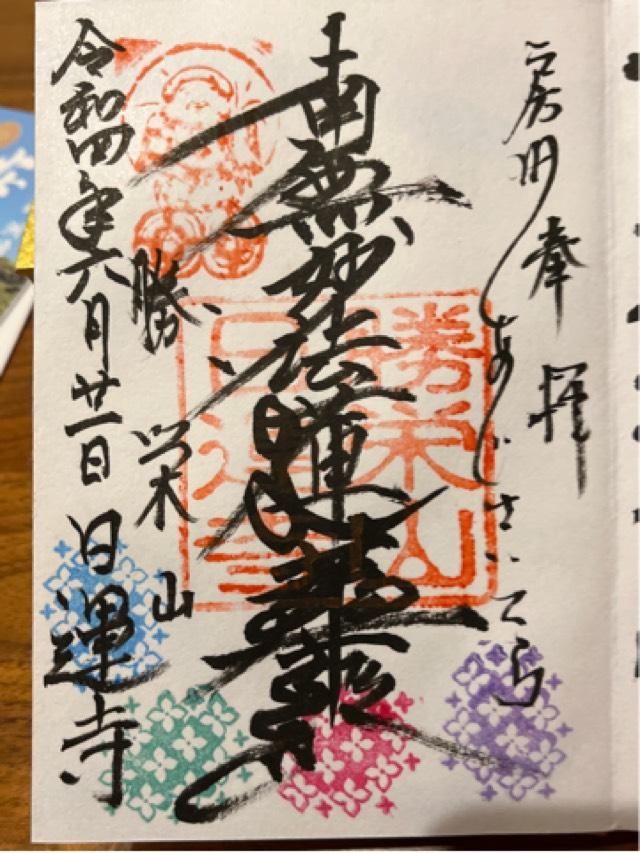 奉拝
あじさいてら
南無妙法蓮華経
勝栄山
日運寺
勝栄山
令和四年六月廿一日 日運寺